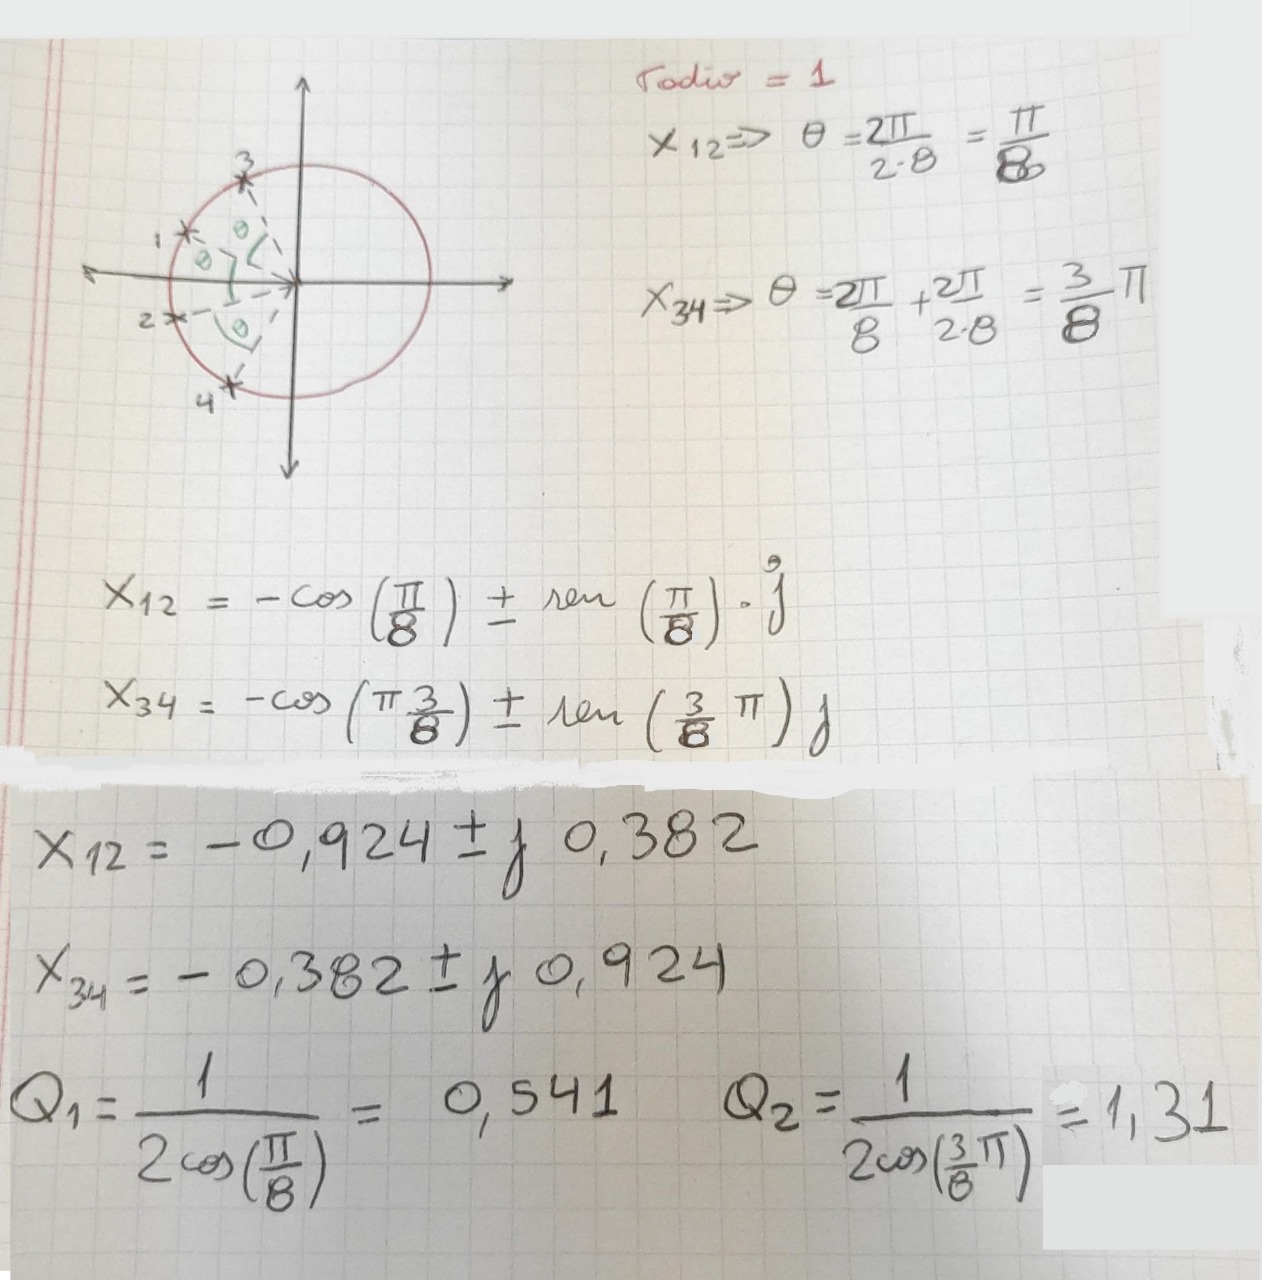 radio = 1
X12 => θ = 2π/2·8 = π/8
X34 => θ = 2π/8 + 2π/2·8 = 3/8 π
3
1
θ
θ
2
θ
4
X12 = -cos (π/8) ± sen (π/8) · j
X34 = -cos (π 3/8) ± sen (3/8 π) j
X12 = -0,924 ± j 0,382
X34 = -0,382 ± j 0,924
Q1 = 1/2cos(π/8) = 0,541 Q2 = 1/2cos(3/8 π) = 1,31